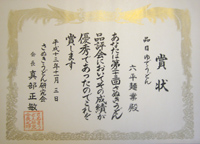 賞状
品目 ゆでうどん
六平麺業殿
あなたは第十回さぬきうどん
品評会においてその成績が
優秀であったのでこれを
賞します
平成十三年十一月三日
さぬきうどん研究会
会長 真部正敏